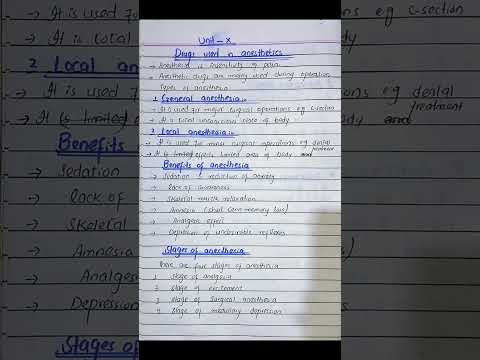 Unit - X
Drugs used in anesthetics
→ Anesthesia is insensitivity of pain
→ Anesthetic drugs are mainly used during operation
Types of anesthesia
1 General anesthesia:-
→ It is used for major surgical operations eg c-section
→ It is total unconscious state of body
2 Local anesthesia:-
→ It is used for minor surgical operations eg dental treatment
→ It is limited effects limited area of body and
Benefits of anesthesia
→ Sedation → reduction of anxiety
→ Lack of awareness
→ Skeletal muscle relaxation
→ Amnesia (short term memory loss)
→ Analgesic effect
→ Depression of undesirable reflexes
Stages of anesthesia
There are four stages of anesthesia
1 Stage of analgesia
2 Stage of excitement
3 Stage of surgical anesthesia
4 Stage of medullary depression